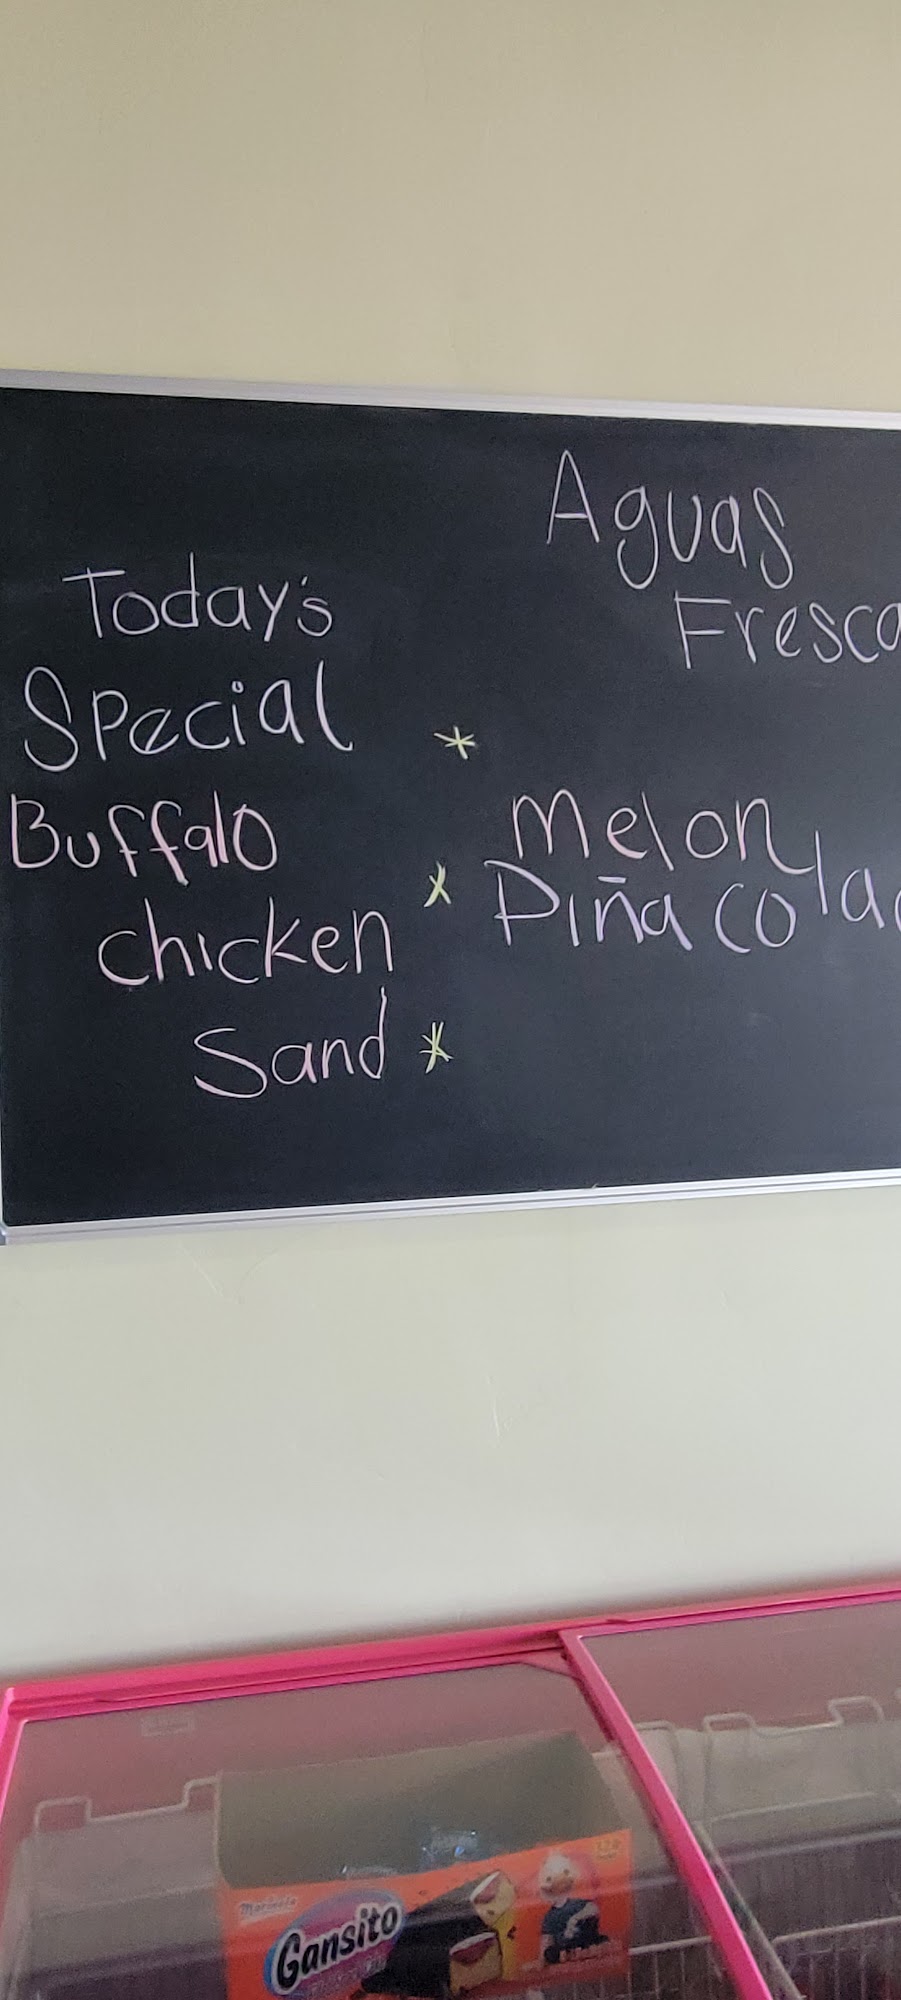 Today's
Special
Buffalo
chicken
Sand
Aguas
Fresca
Melon
Piña cola
Marinela
Gansito